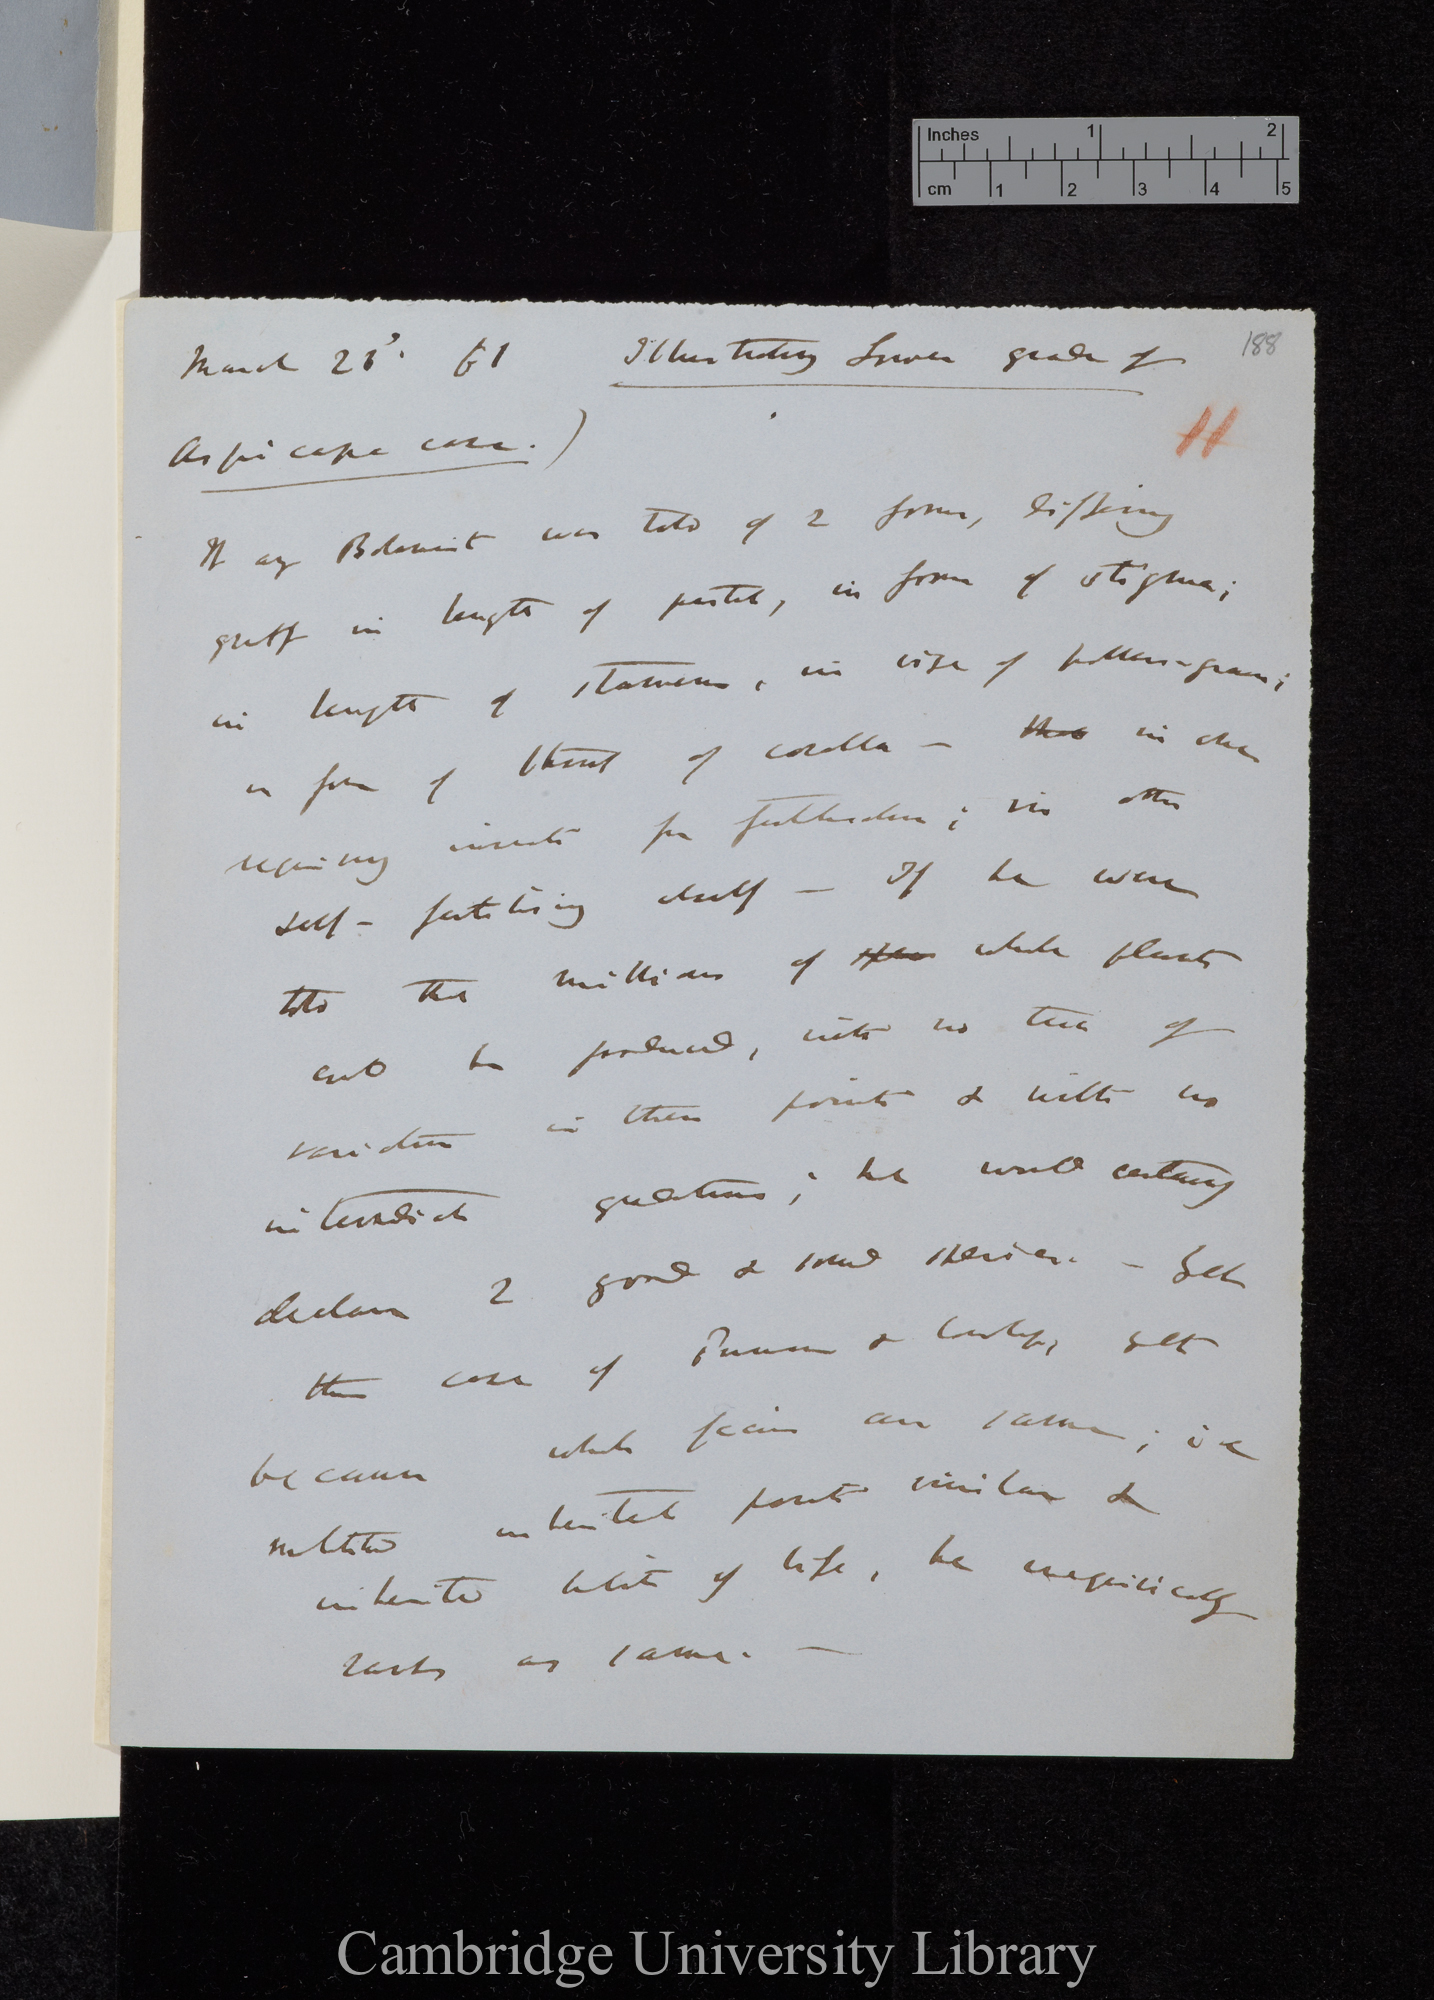 Inches 1 2
cm 1 2 3 4 5
188
March 23d. 61 Illustrating Lower grade of
Aspicarpa case.)
If any Botanist was told of 2 forms, differing
greatly in length of pistil, in form of stigma;
in length of stamens, in size of pollen-grains;
in form of throat of corolla — that in one
requiring insects for fertilisation; in other
self-fertilising itself — If he were
told that millions of these whole plants
could be produced, with no trace of
variation in these points & with no
intermediate gradations; he would certainly
declare 2 good & sound species. — Yet
this case of Primrose & Cowslip, yet
because whole seeds are same; ie
inherited points similar &
inherited habits of life, he unequivocally
ranks as same. —
Cambridge University Library